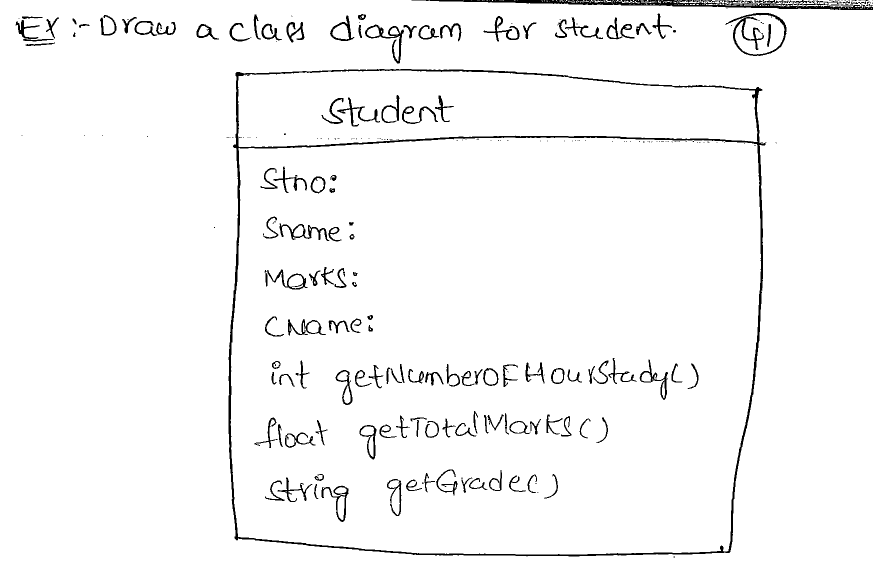 EX :- Draw a class diagram for student. 41
Student
Stno:
Sname:
Marks:
CName:
int getNumberOFHourStudy()
float getTotalMarks()
string getGrade()